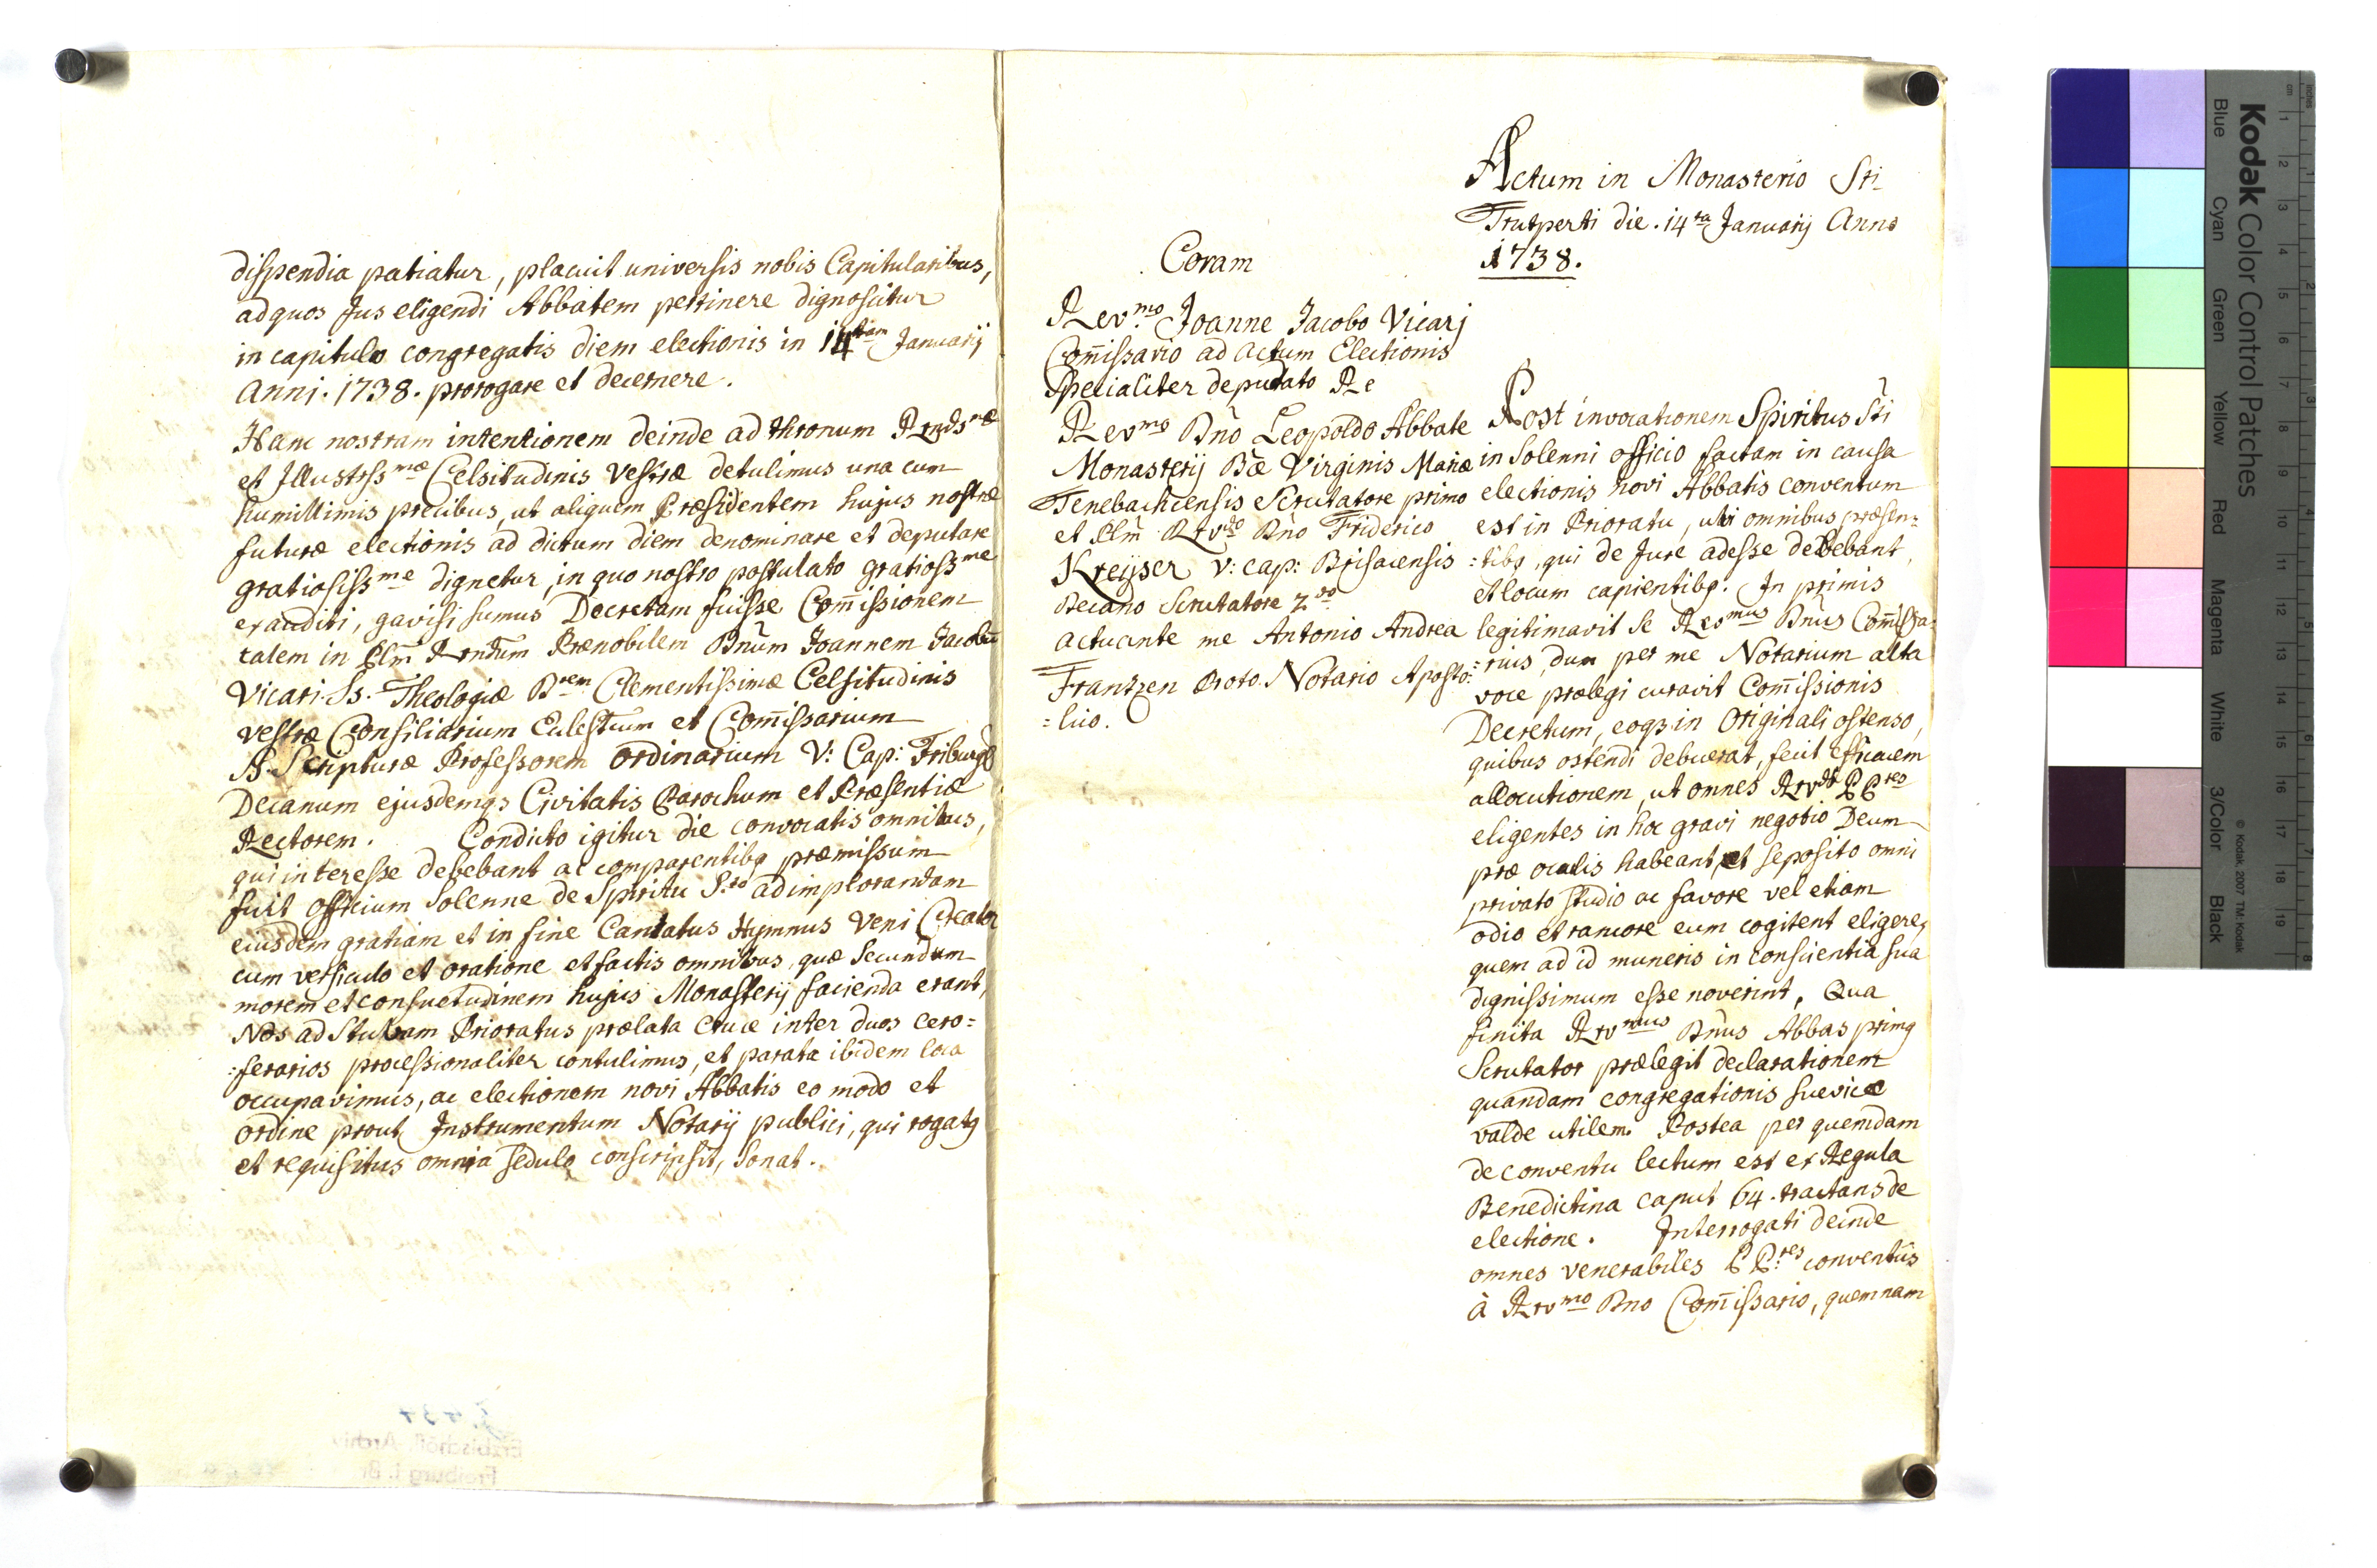 dispendia patiatur, placuit universis nobis Capitularibus,
ad quos Jus eligendi Abbatem pertinere dignoscitur
in capitulo congregatis diem electionis in 14tam Januarij
Anni. 1738. prorogare et decernere.
Hanc nostram intentionem deinde ad thronum
et Illustrss.mæ Celsitudinis Vestræ detulimus una cum
humillimis precibus, ut aliquem Præsidentem hujus nostræ
futuræ electionis ad dictum diem denominare et deputare
gratiosiss.me dignetur, in quo nostro postulato gratioss.me
exauditi, gavisi sumus Decretam fuisse Com̄issionem
talem in Plm̄ Rndum Prænobilem Dnūm Joannem Jacobū
Vicari. Ss. Theologiæ Drem Clementissimæ Celsitudinis
vestræ Consiliarium Eclesticum et Com̄issarium
S. Scripturæ Professorem ordinarium V: Cap: Friburg
Decanum ejusdemqȝ Civitatis Parochum et Præsentiæ
Rectorem. Condicto igitur die convocatis omnibus,
qui interesse debebant ac comparentibȝ præmissum
fuit officium Solenne de Spiritu S.to ad implorandam
eiusdem gratiam et in fine Cantatus Hymnus Veni Creator
cum versiculo et oratione et factis omnibus, quæ Secundum
morem et consuetudinem hujus Monasterij facienda erant,
Nos ad Stubam Prioratus prælata Cruce inter duos cero=
:ferarios processionaliter contulimus, et parata ibidem loca
occupavimus, ac electionem novi Abbatis eo modo et
ordine prout Instrumentum Notarij publici, qui rogatȝ
et requisitus omnia sedulo conscripsit, Sonat.
Actum in Monasterio Sti
Trutperti die. 14ta Januarij Anno
1738.
Coram
Rev.mo Joanne Jacobo Vicarj
Com̄issario ad actum Electionis
Specialiter deputato Re
Revmo Dnō Leopoldo Abbate
Monasterij Bæ Virginis Mariæ
Tenebachensis Scrutatore primo
et Plm̄ Rrvdo Dnō Friderico
Kreijser V: cap: Brisacensis
Decano Scrutatore 2do
actuante me Antonio Andrea
Frantzen Proto. Notario Aposto:
=lico.
Post invocationem Spiritus Sti
in Solenni officio factam in causa
electionis novi Abbatis conventum
est in Prioratu, ubi omnibus præsen:
:tibȝ, qui de Jure adesse debebant,
et locum capientibȝ. In primis
legitimavit se Revmus Dnūs Com̄issa:
:rius, dum per me Notarium alta
voce prælegi curavit Com̄issionis
Decretum, eoqȝ in Originali ostenso,
quibus ostendi debuerat, fecit efficacem
allocutionem, ut omnes Rrvdi PPres
eligentes in hoc gravi negotio Deum
præ oculis habeant, et seposito omni
privato studio ac favore vel etiam
odio et rancore eum cogitent eligere,
quem ad id muneris in conscientia sua
dignissimum esse noverint. Qua
finita Rrvmus Dnūs Abbas primȝ
Scrutator prælegit declarationem
quandam congregationis suevicæ
valde utilem. Postea per quemdam
de conventu lectum est ex Regula
Benedictina caput 64. tractans de
electione. Interrogati deinde
omnes venerabiles PP.res conventûs
à Rrvmo Dno Com̄issario, quemnam
Kodak Color Control Patches
Blue Cyan Green Yellow Red Magenta White 3/Color Black
© Kodak, 2007 TM: Kodak
Erzbischöfl. Archiv
Freiburg i. Br.